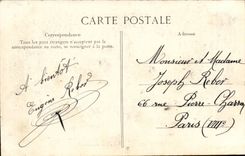 CARTE POSTALE
Correspondance
Tous les pays étrangers n'acceptent pas la
correspondance au recto, se renseigner à la poste.
Adresse
A bientôt
Eugène Rebor
Monsieur et Madame
Joseph Rebor
66 rue Pierre Charron
Paris